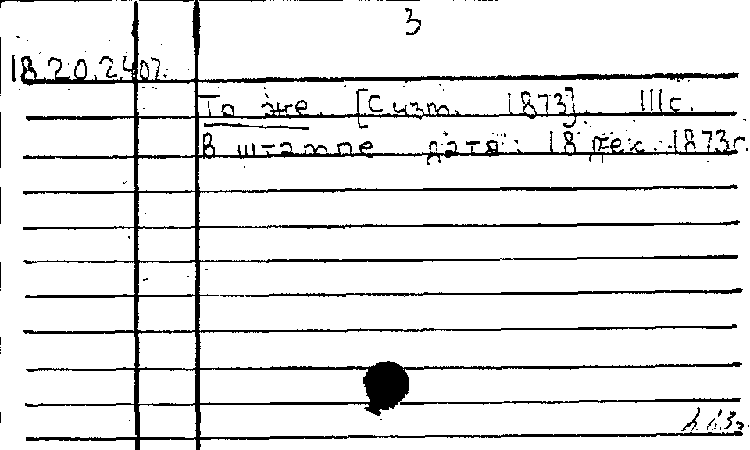 3
18.20.2.407.
То же. [С изм. 1873]. 111с.
В штампе дата: 18 дек. 1873г.